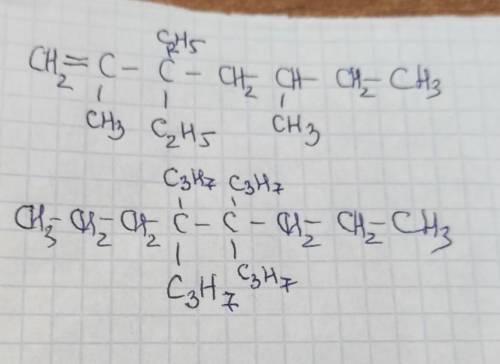 C2H5
CH2=C-C-CH2-CH-CH2-CH3
CH3 C2H5 CH3
C3H7 C3H7
CH3-CH2-CH2-C-C-CH2-CH2-CH3
C3H7 C3H7